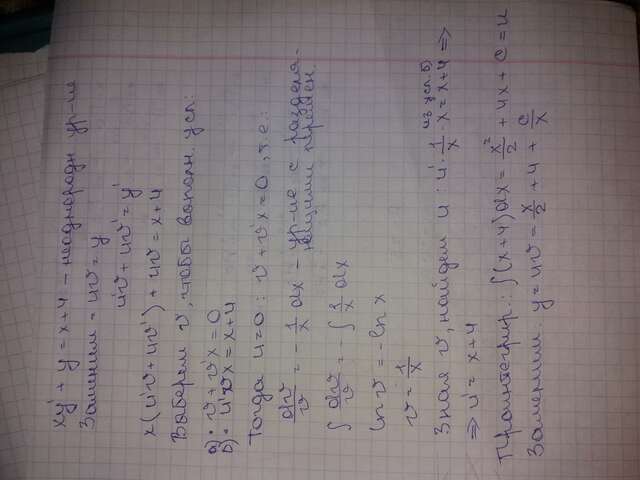 xy' + y = x+4 - неоднородн ур-ие
Заменим = uv = y
u'v + uv' = y'
x(u'v + uv') + uv = x+4
Выберем v, чтобы выполн. усл:
а) • v + v'x = 0
б) • u'vx = x+4
Тогда u=0 : v + v'x = 0, т.е.:
dv/v = - 1/x dx - ур-ие с разделя-
ющимися перемен.
∫ dv/v = - ∫ 1/x dx
ln v = - ln x
v = 1/x
Зная v, найдем u : u' · 1/x · x = x+4 ⇒
из усл. б)
⇒ u' = x+4
Проинтегрир.: ∫(x+4)dx = x²/2 + 4x + C = u
Заменим: y = uv = x/2 + 4 + C/x